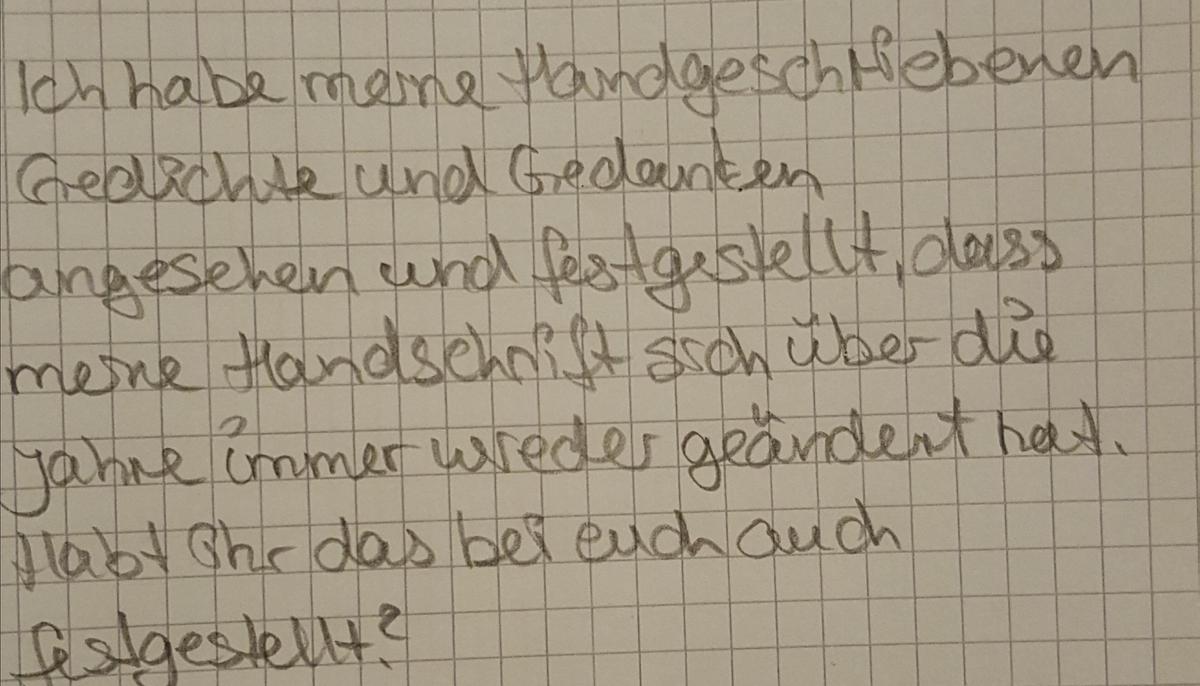 Ich habe meine Handgeschriebenen
Gedichte und Gedanken
angesehen und festgestellt, dass
meine Handschrift sich über die
Jahre immer wieder geändert hat.
Habt Ihr das bei euch auch
festgestellt?